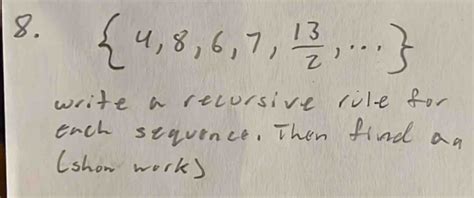 8. { 4, 8, 6, 7, 13/2, ... }
write a recursive rule for
each sequence. Then find a₉
(show work)